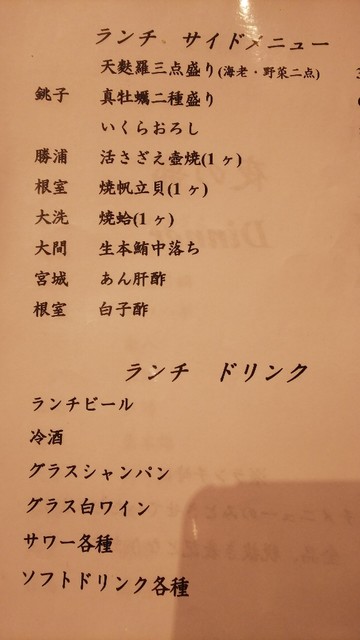 ランチ、サイドメニュー
天麩羅三点盛り(海老・野菜二点)
銚子 真牡蠣二種盛り
いくらおろし
勝浦 活さざえ壺焼(1ヶ)
根室 焼帆立貝(1ヶ)
大洗 焼蛤(1ヶ)
大間 生本鮪中落ち
宮城 あん肝酢
根室 白子酢
ランチ ドリンク
ランチビール
冷酒
グラスシャンパン
グラス白ワイン
サワー各種
ソフトドリンク各種